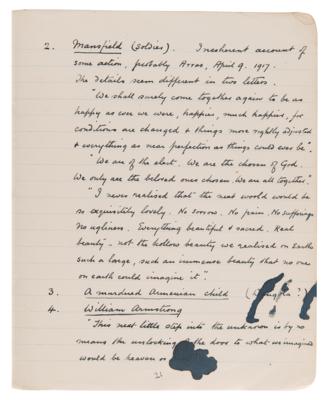 2. Mansfield (soldier). Incoherent account of
some action, probably Arras, April 9. 1917.
The details seem different in two letters.
"We shall surely come together again to be as
happy as ever we were, happier, much happier, for
conditions are changed & things more rightly adjusted
& everything as near perfection as things could ever be".
"We are of the elect. We are the chosen of God.
We only are the beloved ones chosen. We are all together."
"I never realised that the next world would be
so exquisitely lovely. No sorrow. No pain. No sufferings
No ugliness. Everything beautiful & sacred. Real
beauty - not the hollow beauty we realised on Earth
such a large, such an immense beauty that no one
on earth could imagine it".
3. A murdered Armenian child
4. William Armstrong
"This next little step into the unknown is by no
means the unlocking the door to what we imagined
would be heaven or